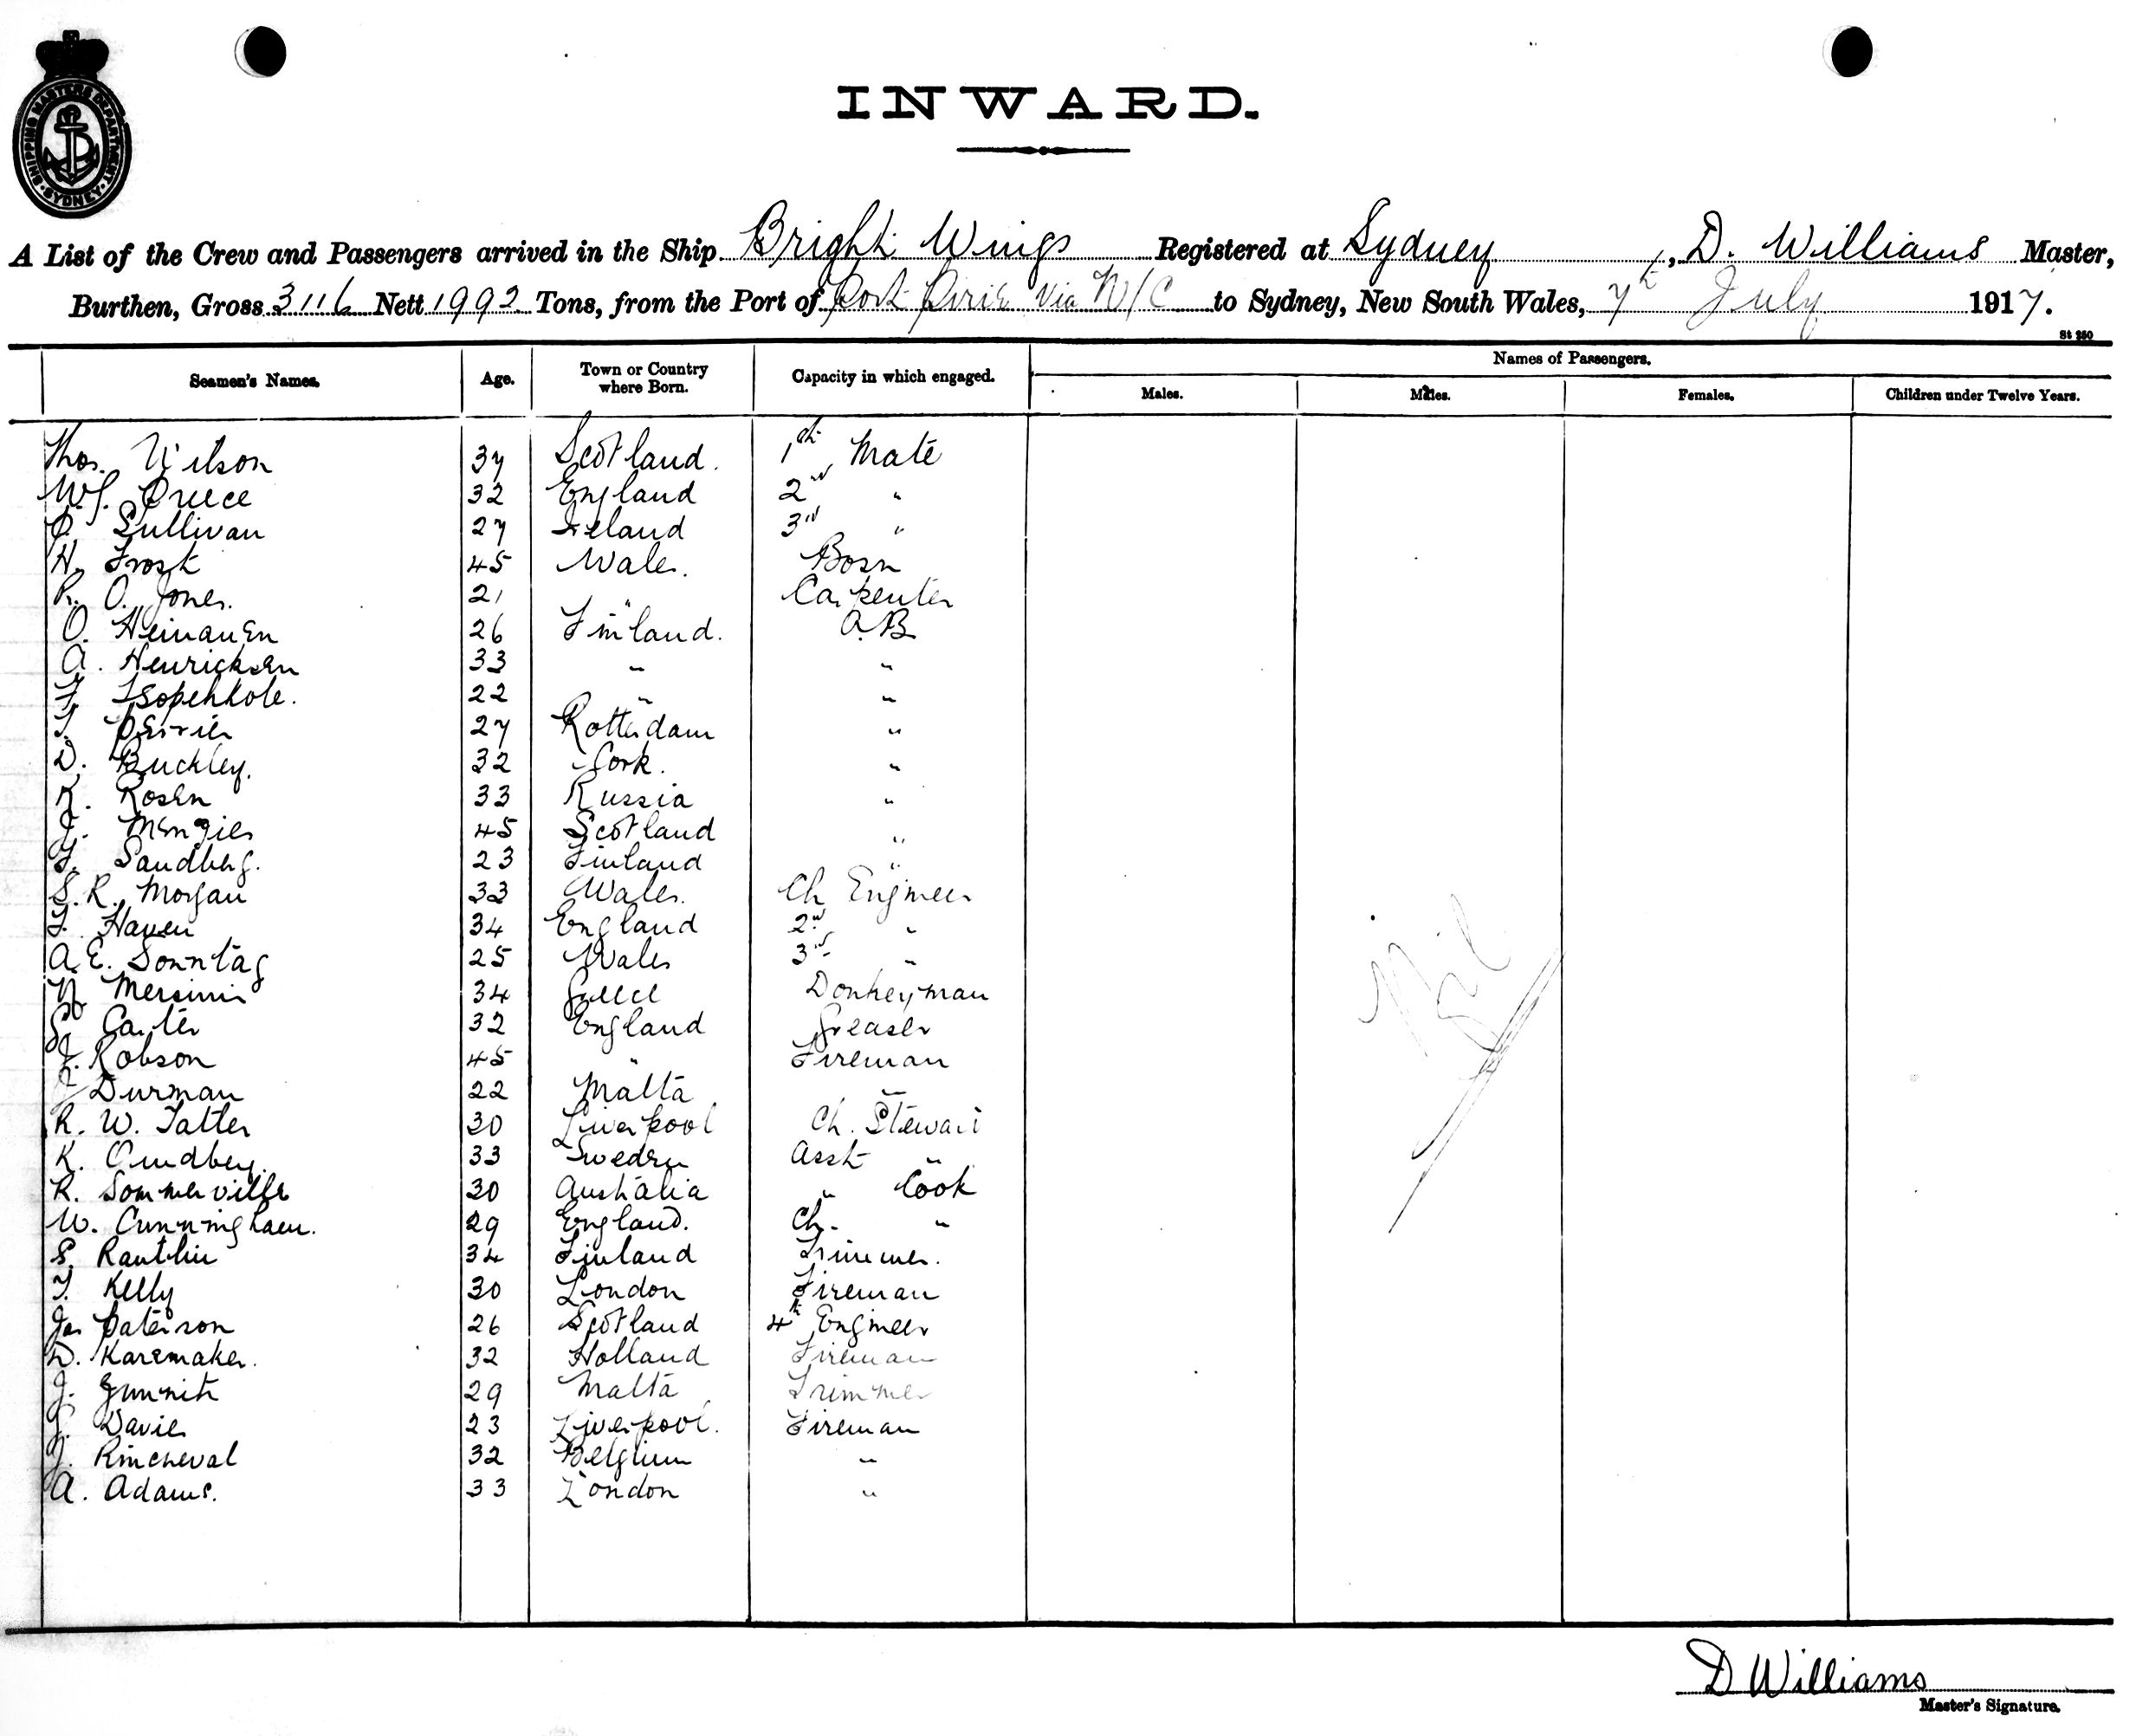 SHIPPING MASTERS DEPARTMENT · SYDNEY ·
INWARD.
A List of the Crew and Passengers arrived in the Ship Bright Wings Registered at Sydney, D. Williams Master,
Burthen, Gross 3116 Nett 1992 Tons, from the Port of Port Pirie via N/C to Sydney, New South Wales, 7th July 1917.
St 250
Seamen's Names. Age. Town or Country where Born. Capacity in which engaged. Names of Passengers.
Males. Males. Females. Children under Twelve Years.
Thos. Wilson 37 Scotland. 1st Mate
W.J. 32 England 2nd "
Sullivan 27 Ireland 3rd "
H. Frost 45 Wales. Bosn
R. O. Jones. 21 " Carpenter
O. Heinanen 26 Finland. A.B
A. Henricksen 33 " "
22 " "
27 Rotterdam "
D. Buckley. 32 Cork. "
K. Rosen 33 Russia "
J. Menzies 45 Scotland "
Sandberg. 23 Finland "
S. R. Morgan 33 Wales. Ch Engineer
Haven 34 England 2nd "
A. E. Sonntag 25 Wales 3rd "
34 Greece Donkeyman
Carter 32 England Greaser
J. Robson 45 " Fireman
J Durman 22 Malta "
R. W. Tatler 30 Liverpool Ch. Steward
K. 33 Sweden Asst "
R. Sommerville 30 Australia " Cook
W. Cunningham. 29 England. Ch. "
S. Rautlin 34 Finland Trimmer.
T. Kelly 30 London Fireman
Jas Paterson 26 Scotland 4th Engineer
D. Karemaker. 32 Holland Fireman
J. 29 Malta Trimmer
J. Davies 23 Liverpool. Fireman
J. Rincheval 32 Belgium "
A. Adams. 33 London "
Nil
D Williams
Master's Signature.